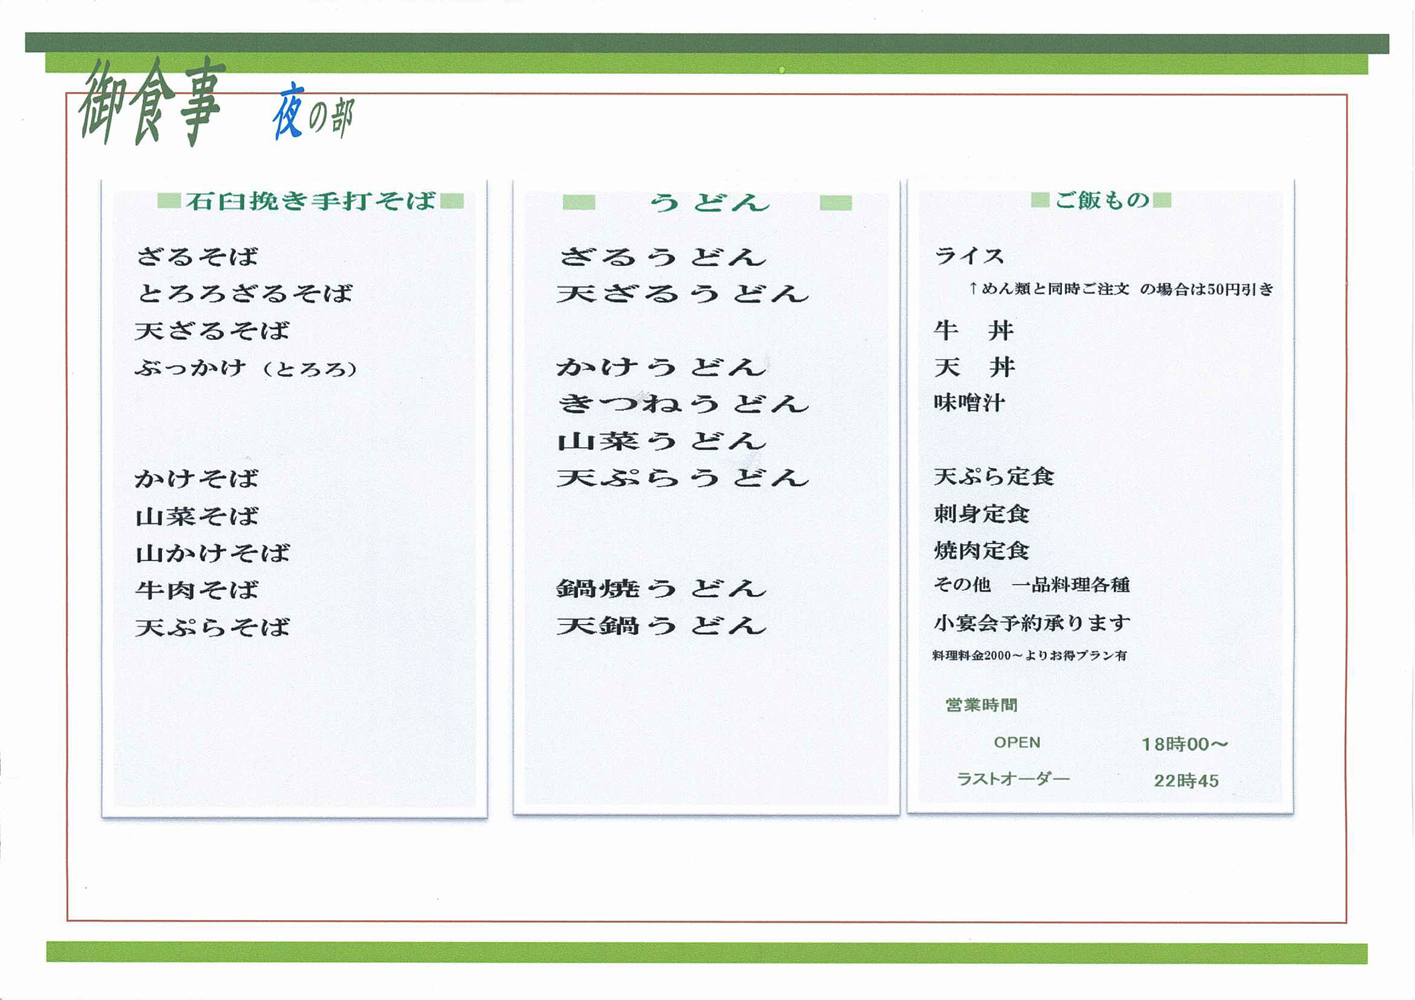 御食事 夜の部
■石臼挽き手打そば■
ざるそば
とろろざるそば
天ざるそば
ぶっかけ（とろろ）
かけそば
山菜そば
山かけそば
牛肉そば
天ぷらそば
■ うどん ■
ざるうどん
天ざるうどん
かけうどん
きつねうどん
山菜うどん
天ぷらうどん
鍋焼うどん
天鍋うどん
■ご飯もの■
ライス
↑めん類と同時ご注文 の場合は50円引き
牛 丼
天 丼
味噌汁
天ぷら定食
刺身定食
焼肉定食
その他 一品料理各種
小宴会予約承ります
料理料金2000～よりお得プラン有
営業時間
OPEN 18時00～
ラストオーダー 22時45